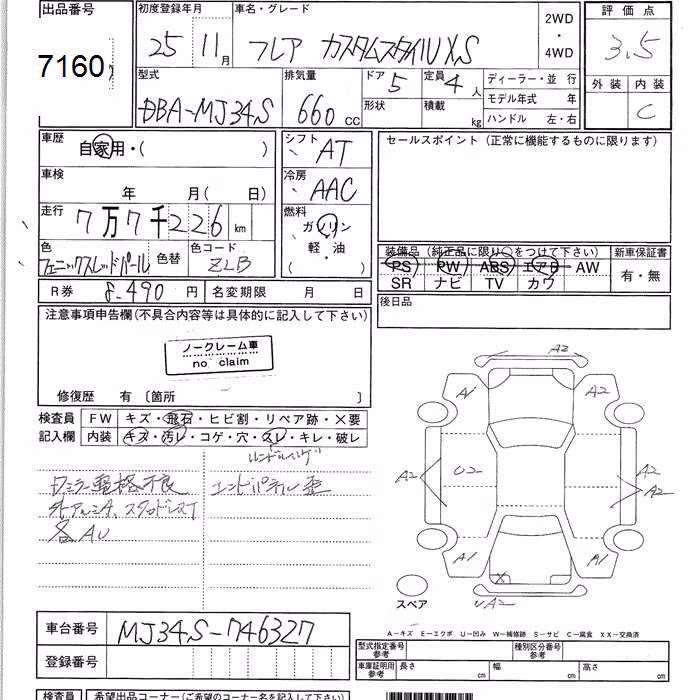 出品番号
7160
初度登録年月
25 11 月
車名・グレード
フレア カスタムスタイルXS
2WD
・
4WD
評価点
3.5
外装 内装
C
型式
DBA-MJ34S
排気量
660 cc
ドア 5
形状
定員 4 人
積載 kg
ディーラー・並行
モデル年式 年
ハンドル 左・右
車歴
自家用・( )
車検
年 月( 日)
走行
7万7千226 km
色
フェニックスレッドパール
色替
色コード
ZLB
シフト
AT
冷房
AAC
燃料
ガソリン
軽・油
( )
セールスポイント(正常に機能するものに限ります)
装備品(純正品に限り○をつけて下さい) 新車保証書
PS PW ABS エアB AW
SR ナビ TV カワ
有・無
後日品
R券 8,490 円 名変期限 月 日
注意事項申告欄(不具合内容等は具体的に記入して下さい)
ノークレーム車
no claim
修復歴 有 〔箇所 〕
検査員
記入欄
FW キズ・飛石・ヒビ割・リペア跡・×要
内装 キズ・汚レ・コゲ・穴・スレ・キレ・破レ
ハンドルハゲ
ワミラー電格不良
エンドパネル歪
社外アルミ4、スタッドレスT
各AU
A2
A1 A2
A2 U2 A2
A2
A1 A1
X
UA2
スペア
A-キズ E-エクボ U-凹み W-補修跡 S-サビ C-腐食 XX-交換済
車台番号 MJ34S-746327
登録番号
型式指定番号
参考
種別区分番号
参考
車庫証明用
参考
長さ cm 幅 cm 高さ cm
検査員 希望出品コーナー(ご希望のコーナー名を記入して下さい)